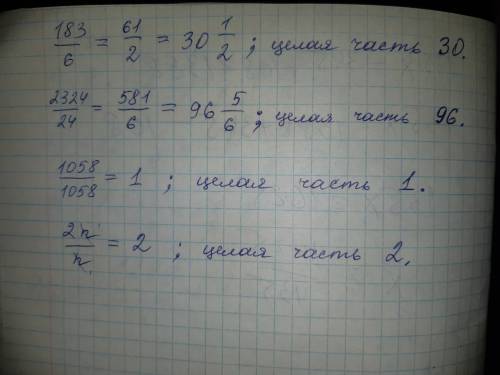 183/6 = 61/2 = 30 1/2 ; целая часть 30.
2324/24 = 581/6 = 96 5/6 ; целая часть 96.
1058/1058 = 1 ; целая часть 1.
2n/n = 2 ; целая часть 2.